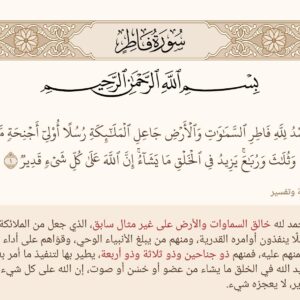 سُورَةُ فَاطِرٍ
بِسْمِ اللَّهِ الرَّحْمَٰنِ الرَّحِيمِ
لِلَّهِ فَاطِرِ ٱلسَّمَٰوَٰتِ وَٱلْأَرْضِ جَاعِلِ ٱلْمَلَٰٓئِكَةِ رُسُلًا أُو۟لِىٓ أَجْنِحَةٍ
وَثُلَٰثَ وَرُبَٰعَ ۚ يَزِيدُ فِى ٱلْخَلْقِ مَا يَشَآءُ ۚ إِنَّ ٱللَّهَ عَلَىٰ كُلِّ شَىْءٍ قَدِيرٌ ١
وتفسير
لله خالق السماوات والأرض على غير مثال سابق، الذي جعل من الملائكة
ينفذون أوامره القدرية، ومنهم من يبلغ الأنبياء الوحي، وقوّاهم على أداء
عليه، فمنهم ذو جناحين وذو ثلاثة وذو أربعة، يطير بها لتنفيذ ما أمر به
الله في الخلق ما يشاء من عضو أو حُسْن أو صوت، إن الله على كل شيء
لا يعجزه شيء.